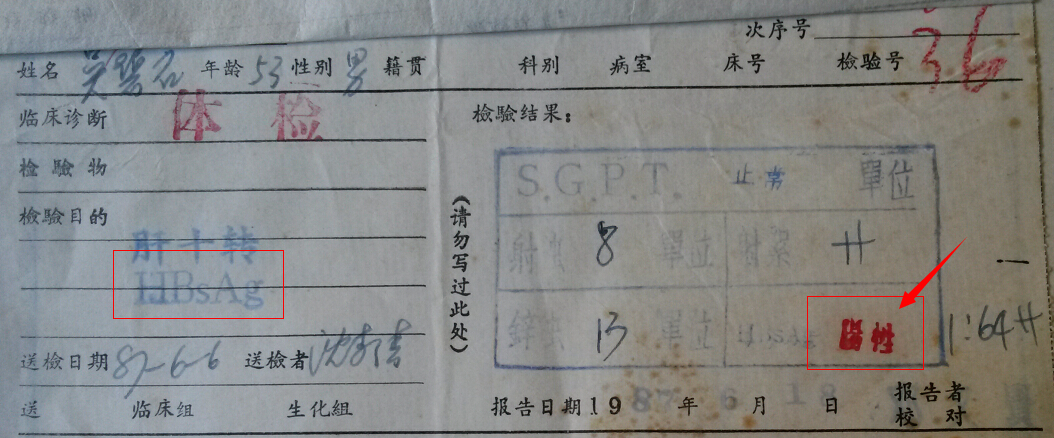 次序号
姓名 年龄 53 性别 男 籍贯 科别 病室 床号 檢验号 36
临床诊断 体检
檢驗结果：
检驗物
檢驗目的
肝十转
HBsAg
(请勿写过此处)
S.G.P.T. 正常 單位
射 8 單位 射絮 卄
锌 13 單位 阳性 1:64卄
送檢日期 87-6-6 送檢者
送 临床组 生化組
报告日期19 87 年 6 月 18 日
报告者
校对